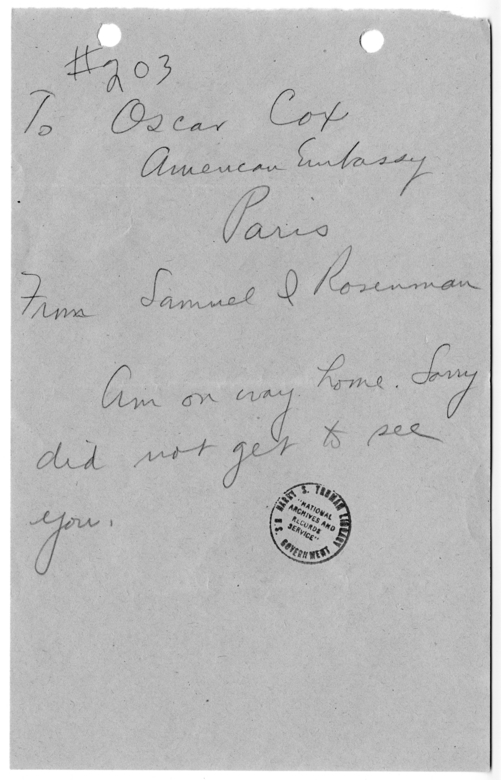 #203
To Oscar Cox
American Embassy
Paris
From Samuel I Rosenman
Am on way home. Sorry
did not get to see
you.
HARRY S. TRUMAN LIBRARY
"NATIONAL
ARCHIVES AND
RECORDS
SERVICE"
U.S. GOVERNMENT